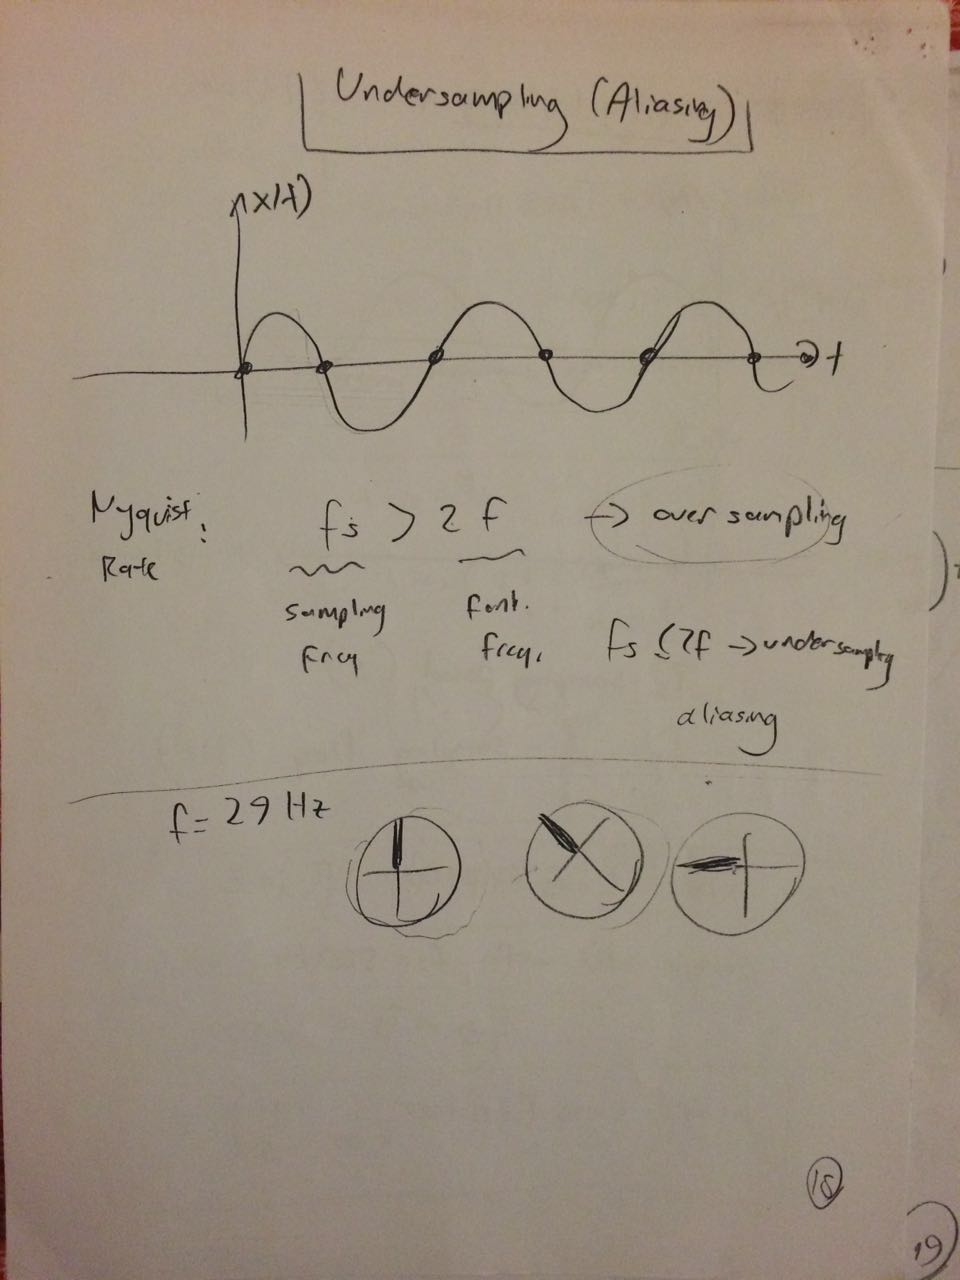 Undersampling (Aliasing)
x(t)
t
Nyquist Rate :
fs > 2 f → over sampling
sampling freq
font. freq.
fs ≤ 2f → undersampling
aliasing
f = 29 Hz
18
19